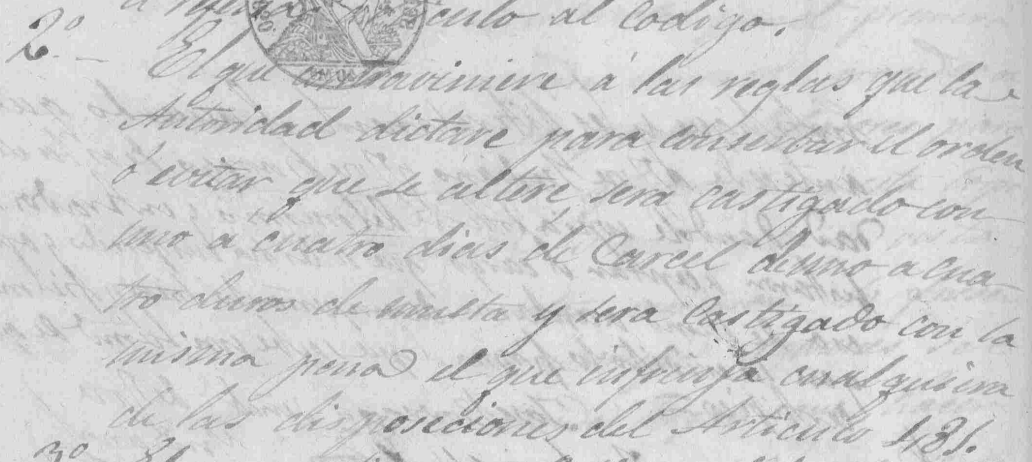 culo al Codigo.
2º El que contraviniere á las reglas que la
Autoridad dictare para conserbar el orden
ó evitar que se altere, sera castigado con
uno a cuatro dias de Carcel de uno a cua-
tro duros de multa y sera castigado con la
misma pena el que infrinja cualquiera
de las disposiciones del Articulo 131.
3º El